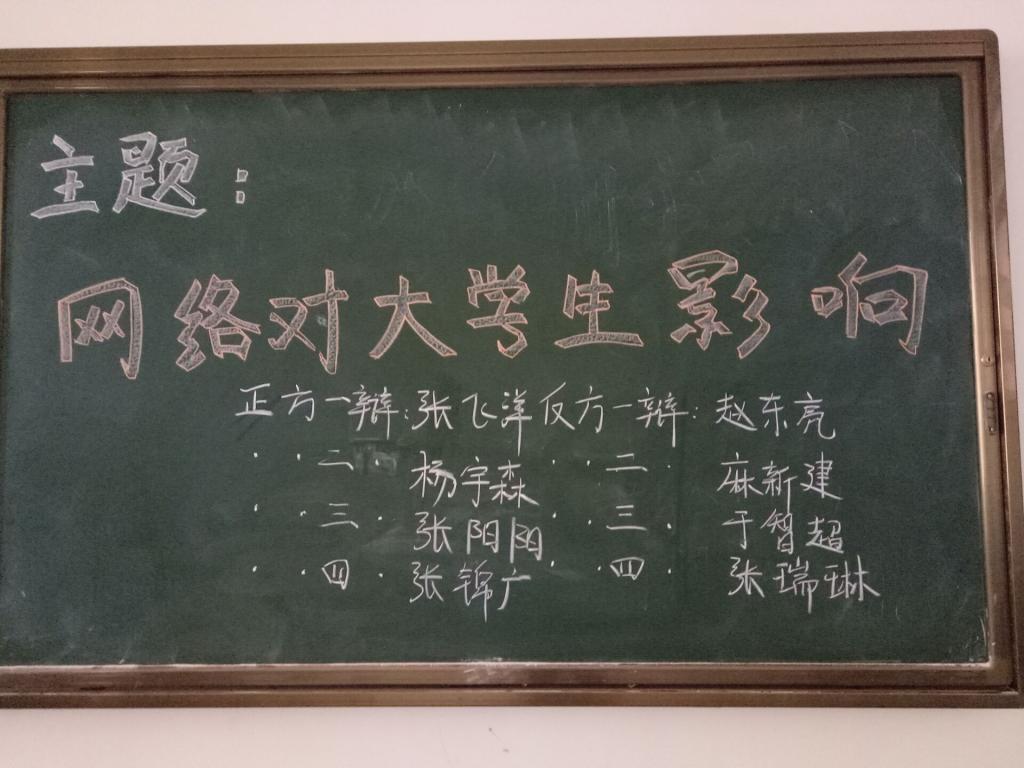 主题：
网络对大学生影响
正方一辩：张飞洋 反方一辩：赵东亮
· · 二 · 杨宇森 · · 二 · 麻新建
· · 三 · 张阳阳 · · 三 · 于智超
· · 四 · 张锦广 · · 四 · 张瑞琳